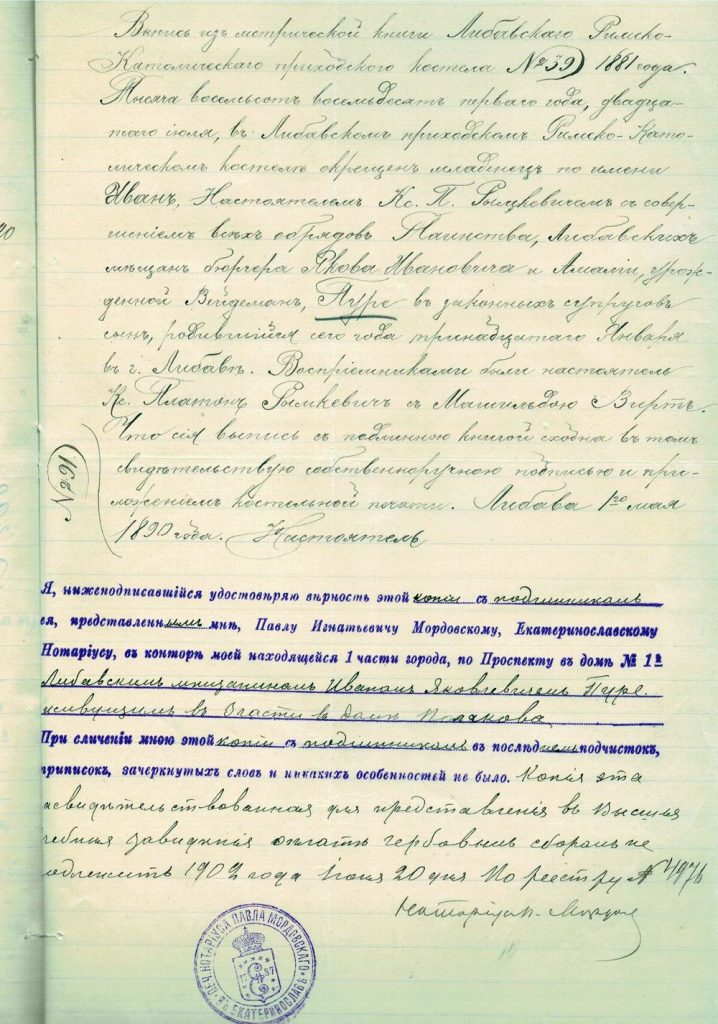 Выпись изъ метрической книги Либавскаго Римско-
Католическаго приходскаго костела № 39) 1881 года.
Тысяча восемьсотъ восемьдесятъ перваго года, двадца-
таго іюля, въ Либавскомъ приходскомъ Римско-Като-
лическомъ костелѣ окрещенъ младенецъ по имени
Иванъ, Настоятелемъ Кс. П. Рымкевичемъ съ совер-
шеніемъ всѣхъ обрядовъ Таинства, Либавскихъ
мѣщанъ бюргера Якова Ивановича и Амаліи, урож-
денной Вейдеманъ, Пуре въ законныхъ супруговъ
сынъ, родившійся сего года тринадцатаго Января
въ г. Либавѣ. Воспріемниками были настоятель
Кс. Платонъ Рымкевичъ съ Матильдою Виртъ.
Что сія выпись съ подлинною книгой сходна въ томъ
свидѣтельствую собственноручною подписью и при-
ложеніемъ костельной печати. Либава 1го мая
1890 года. Настоятель
№ 162
20
Я, нижеподписавшійся удостовѣряю вѣрность этой копіи съ подлинникомъ
ея, представленнымъ мнѣ, Павлу Игнатьевичу Мордовскому, Екатеринославскому
Нотаріусу, въ конторѣ моей находящейся 1 части города, по Проспекту въ домѣ № 1й
Либавскимъ мѣщаниномъ Иваномъ Яковлевичемъ Пуре,
живущимъ въ части въ домѣ Полякова
При сличеніи мною этой копіи съ подлинникомъ въ послѣднемъ подчистокъ,
приписокъ, зачеркнутыхъ словъ и никакихъ особенностей не было. Копія эта
засвидѣтельствованная для представленія въ Высшія
учебныя заведенія оплатѣ гербовымъ сборомъ не
подлежитъ 1902 года Іюня 20 дня По реестру № 4976
Нотаріусъ
ПЕЧ. НОТАРІУСА ПАВЛА МОРДОВСКАГО
ВЪ ЕКАТЕРИНОСЛАВѢ